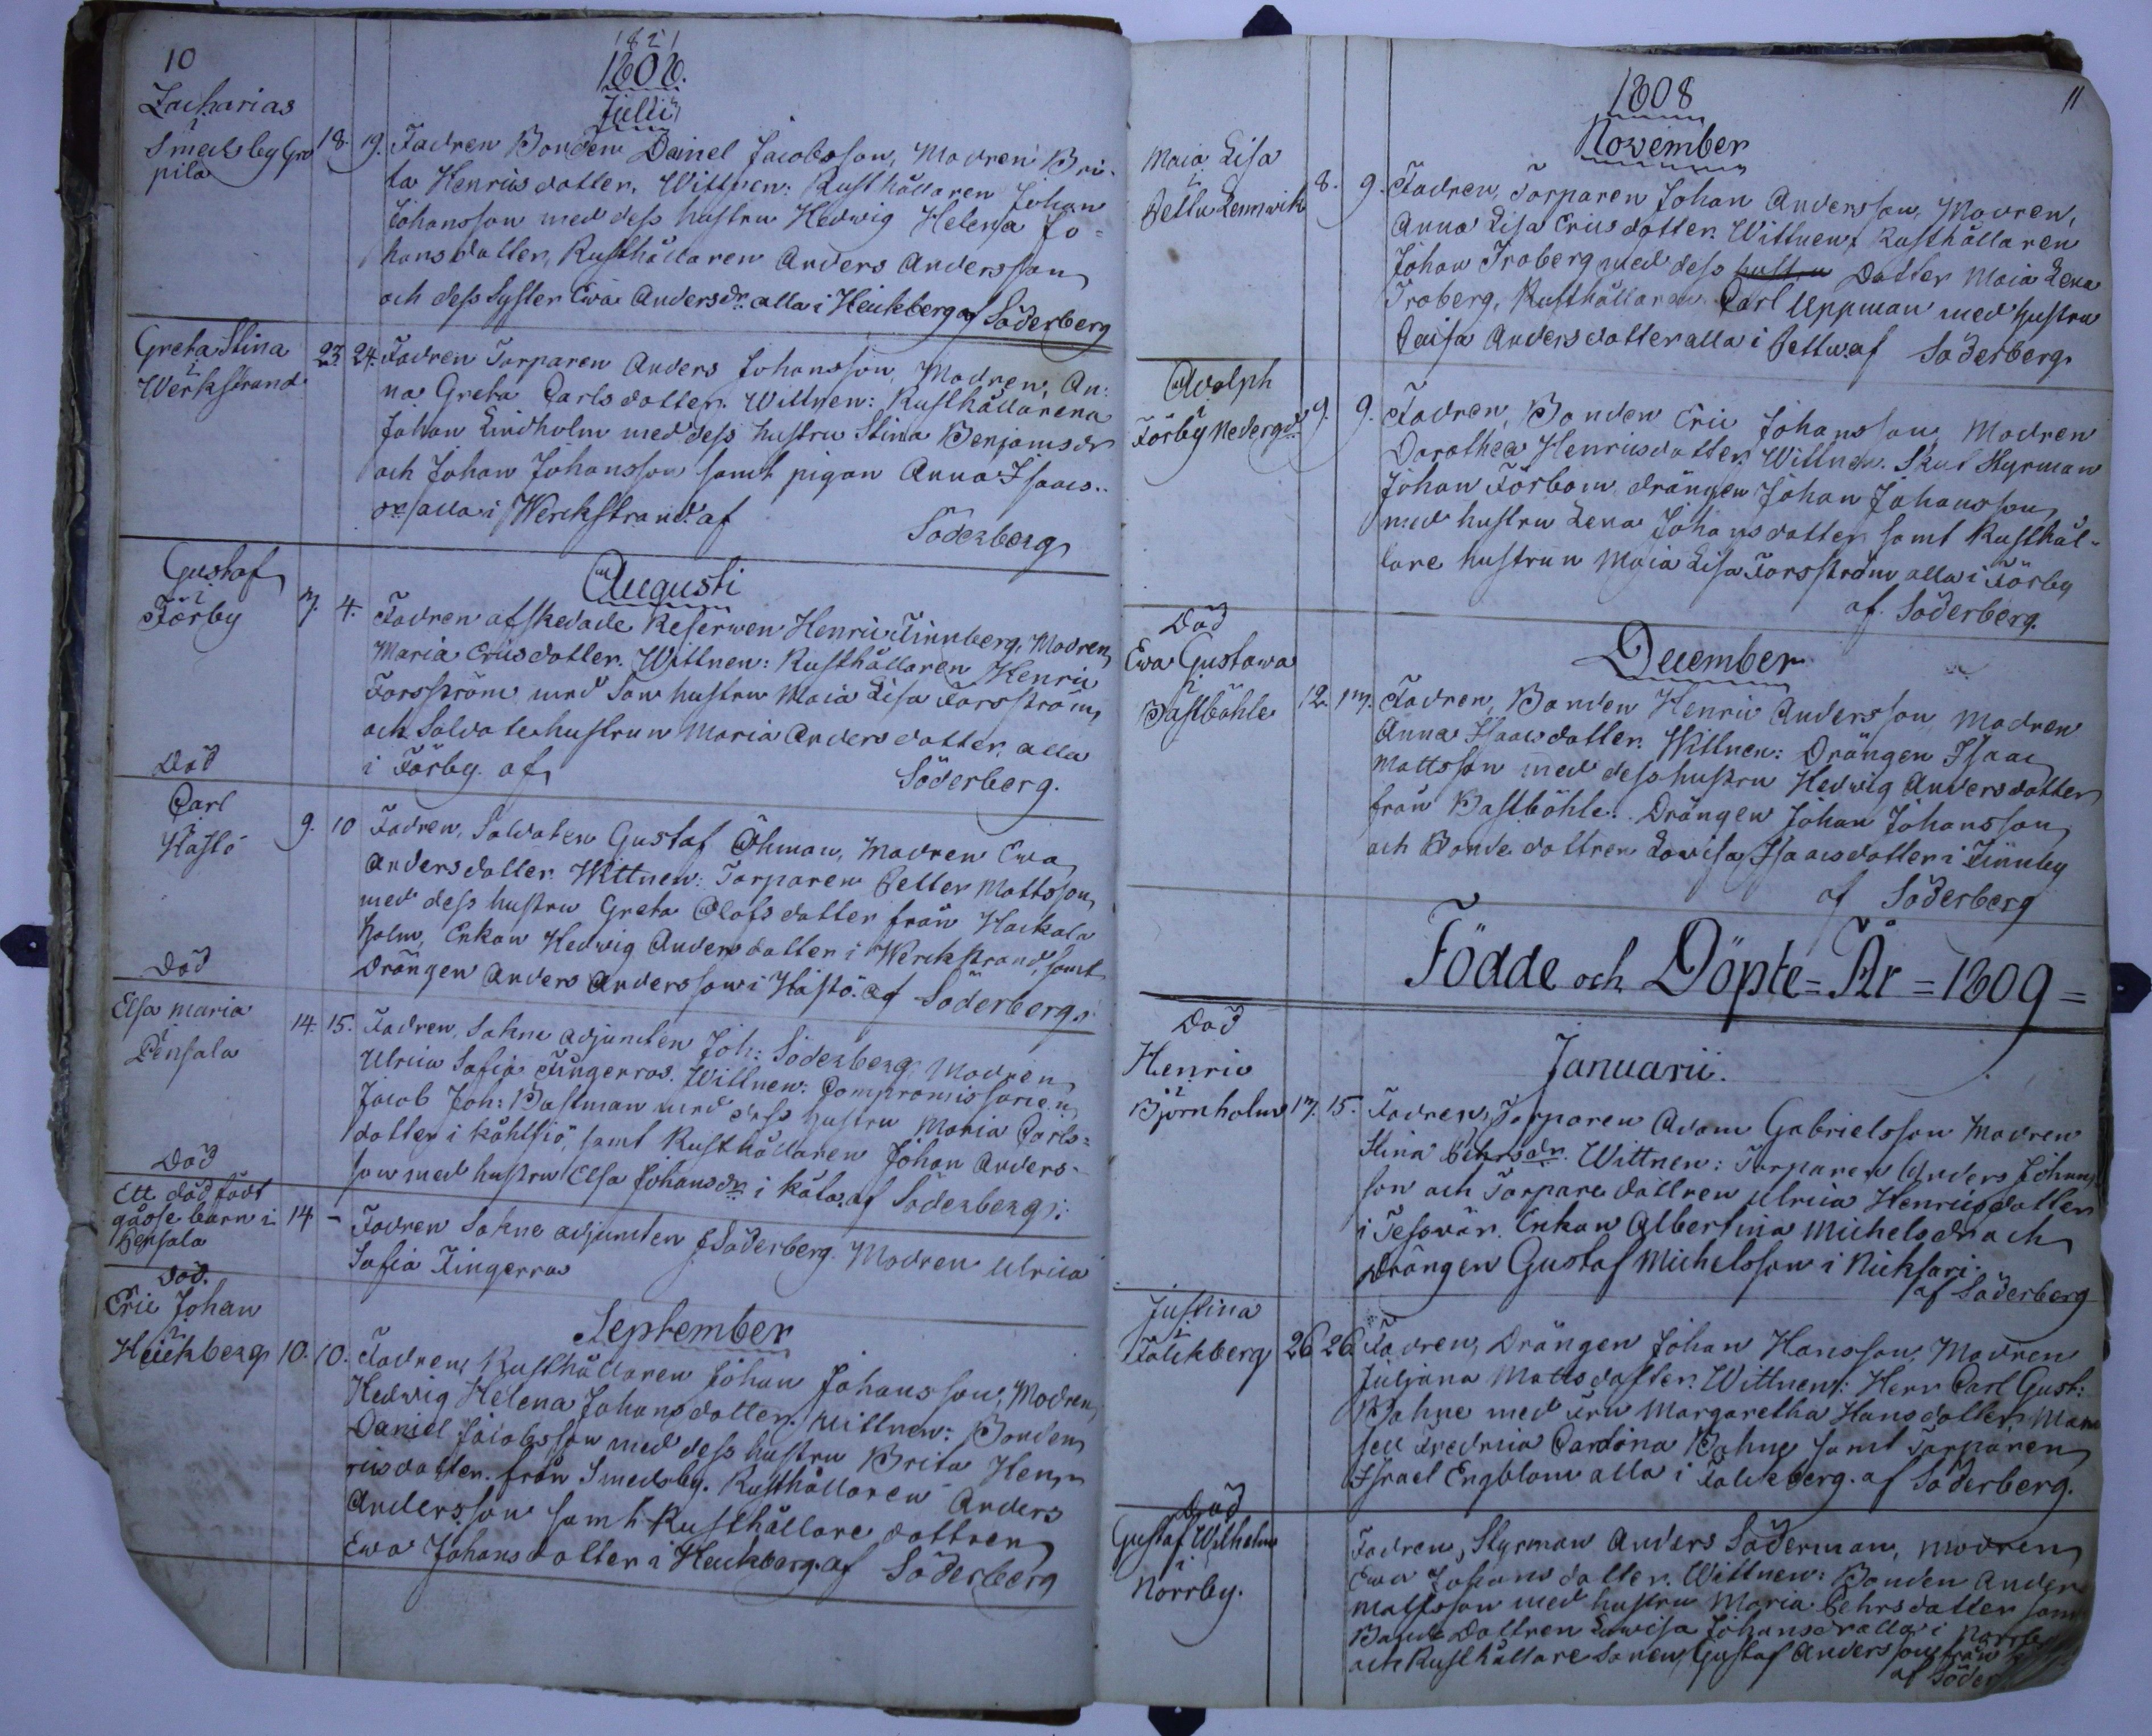 10
1821
1808.
Julii
Zacharias
i
Smedsby Gro
pila
18. 19. Fadren Bonden Daniel Jacobsson, Modren Bri-
ta Henricsdotter. Wittnen: Rusthållaren Johan
Johansson med dess hustru Hedwig Helena Jo=
hansdotter, Rusthållaren Anders Andersson
och dess Syster Ewa Andersdr. alla i Heickberg af Söderberg
Greta Stina
i
Werkstrand
23. 24. Fadren Torparen Anders Johansson, Modren, An:
na Greta Carlsdotter. Wittnen: Rusthållarena
Johan Lindholm med dess hustru Stina Benjamsdr
och Johan Johansson samt pigan Anna Isaacs..
dr. alla i Werckstrand. af
Söderberg
Augusti
Gustaf
i
Förby
3. 4. Fadren afskedade Reserwen Henric Finnberg, Modren
Maria Ericsdotter. Wittnen: Rusthållaren Henric
Forsström med Son hustru Maia Lisa Forsström,
och Soldatehustrun Maria Andersdotter alla
i Förby. af
Söderberg.
Död
Carl
i
Hästö
9. 10 Fadren, Soldaten Gustaf Öhman, Modren Ewa
Andersdotter. Wittnen: Torparen Petter Mattsson
med dess hustru Greta Olofsdotter från Hackala
holm, Enkan Hedwig Andersdotter i Werckstrand, samt
Drängen Anders Andersson i Hästö. af Söderberg.
Död
Elsa Maria
i
Pensala
14. 15. Fadren, Sokne Adjuncten Joh: Söderberg, Modren
Ulrica Sofia Fingerroos. Wittnen: Compromissarien
Jacob Joh: Bastman med dess hustru Maria Carls=
dotter i Kåhlsiö, samt Rusthållaren Johan Anders-
son med hustru Elsa Johansdr. i Kåla. af Söderberg:
Död
Ett dödfödt
gosse barn i
Pensala
14 - Fadren Sokne adjuncten J Söderberg. Modren Ulrica
Sofia Fingerroos
Död.
September
Eric Johan
i
Heickberg
10. 10. Fadren, Rusthållaren Johan Johansson, Modren
Hedwig Helena Johansdotter. Wittnen: Bonden
Daniel Jacobsson med dess hustru Brita Hen-
ricsdotter. från Smedsby. Rusthållaren Anders
Andersson samt Rusthållare dottren
Ewa Johansdotter i Heickberg. af Söderberg
11
1808
November
Maia Lisa
i
Pettu Lemwik
8. 9. Fadren, Torparen Johan Andersson, Modren,
Anna Lisa Ericsdotter. Wittnen, Rusthållaren
Johan Froberg med dess hustru Dotter Maia Lena
Froberg, Rusthållaren Carl Uppman med hustru
Caisa Andersdotter alla i Pettu. af Söderberg
Adolph
i
Förby Nedergd.
9. 9. Fadren, Bonden Eric Johansson, Modren
Dorothea Henricsdotter. Wittnen. Skut Styrman
Johan Förbom, drängen Johan Johansson,
med hustru Lena Johansdotter samt Rusthål-
lare hustrun Maia Lisa Forsström alla i Förby
af. Söderberg.
Död
December
Ewa Gustawa
i
Bastböhle
12. 13. Fadren, Bonden Henric Andersson, Modren
Anna Isaacsdotter. Wittnen: Drängen Isaac
Mattsson med dess hustru Hedwig Andersdotter
från Bastböhle. Drängen Johan Johansson
och Bonde dottren Lowisa Isaacsdotter i Finnby
af Söderberg
Födde och Döpte = År = 1809 =
Död
Januarii.
Henric
i
Björnholm
13. 15. Fadren, Torparen Adam Gabrielsson Modren
Stina Pehrsdr. Wittnen: Torparen Anders Johans
son och Torpare dottren Ulrica Henricsdotter
i Tesswär. Enkan Albertina Michelsdr och
Drängen Gustaf Michelsson i Nicksari.
af Söderberg
Justina
i
Falckberg
26 26 Fadren, Drängen Johan Hansson, Modren
Juljana Mattsdotter. Wittnen: Herr Carl Gust:
Bohne med Fru Margaretha Hansdotter, Mam
sell Fredrica Carolina Bohne samt Torparen
Israel Engblom alla i Falckberg. af Söderberg.
Död
Gustaf Wilhelm
i
Norrby.
Fadren, Styrman Anders Söderman, Modren
Ewa Johansdotter. Wittnen: Bonden Anders
Mattsson med hustru Maria Pehrsdotter samt
Bonde Dottren Lowisa Johansdr alla i Norrby
och Rusthållare Sonen, Gustaf Andersson från
af Söder